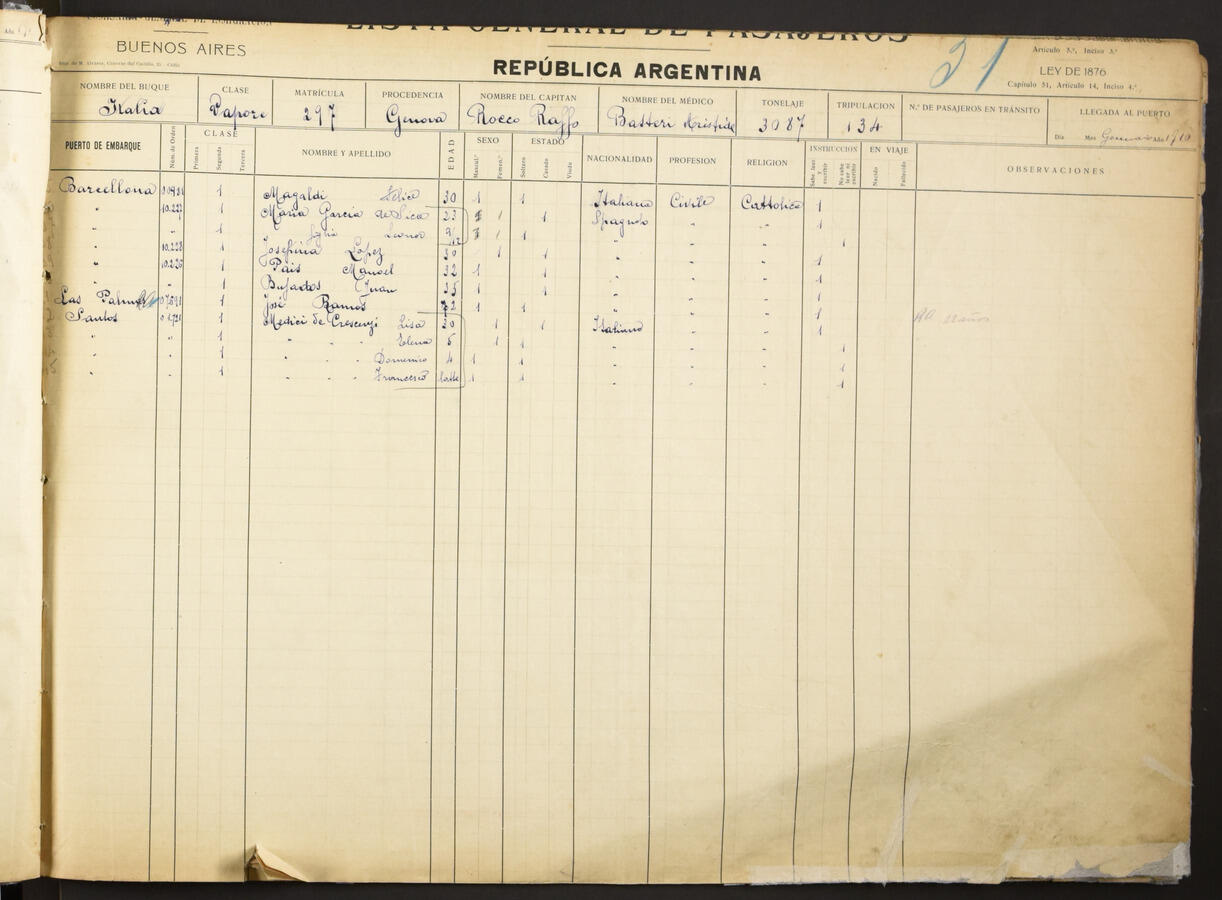 LISTA GENERAL DE PASAJEROS
BUENOS AIRES
REPÚBLICA ARGENTINA
21
Artículo 3º, Inciso 3º
LEY DE 1876
Capítulo 31, Artículo 14, Inciso 4º,
NOMBRE DEL BUQUE CLASE MATRÍCULA PROCEDENCIA NOMBRE DEL CAPITAN NOMBRE DEL MÉDICO TONELAJE TRIPULACION N.º DE PASAJEROS EN TRÁNSITO LLEGADA AL PUERTO
Italia Vapore 297 Genova Rocco Raffo Batteri Aristide 3087 134 Día Mes Gennaio Año 1910
PUERTO DE EMBARQUE Núm. de Orden CLASE Primera Segunda Tercera NOMBRE Y APELLIDO EDAD SEXO Mascul.º Femen.º ESTADO Soltero Casado Viudo NACIONALIDAD PROFESION RELIGION INSTRUCCION Sabe leer y escribir No sabe leer ni escribir EN VIAJE Nacido Fallecido OBSERVACIONES
Barcellona 1 Magaldi Felice 30 1 1 Italiana Civile Cattolica 1
" 10.227 1 Maria Garcia de Sica 23 1 1 Spagnolo " " 1
" " 1 Leonor 1 " " " 1
" 10.228 1 Josefina Lopez 1 1 " " " 1
" 1 Pais Manoel 32 1 1 " " " 1
" 1 Bujados Juan 35 1 1 " " " 1
Las Palmas 1 José Ramos 1 1 " " " 1
Santos 1 Medici de Crescenzi Lisa 20 1 1 Italiano " " 1
" " 1 " " " Elena 5 1 1 " " " 1
" " 1 " " " Domenico 4 1 1 " " " 1
" " 1 " " " Francesco latte 1 1 " " " 1